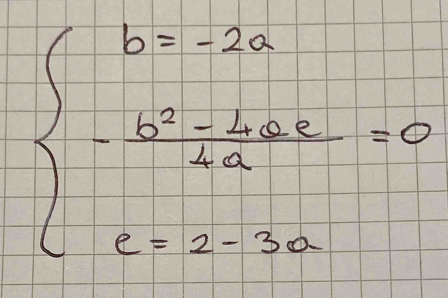 b = -2a
- b² - 4ae / 4a = 0
e = 2 - 3a